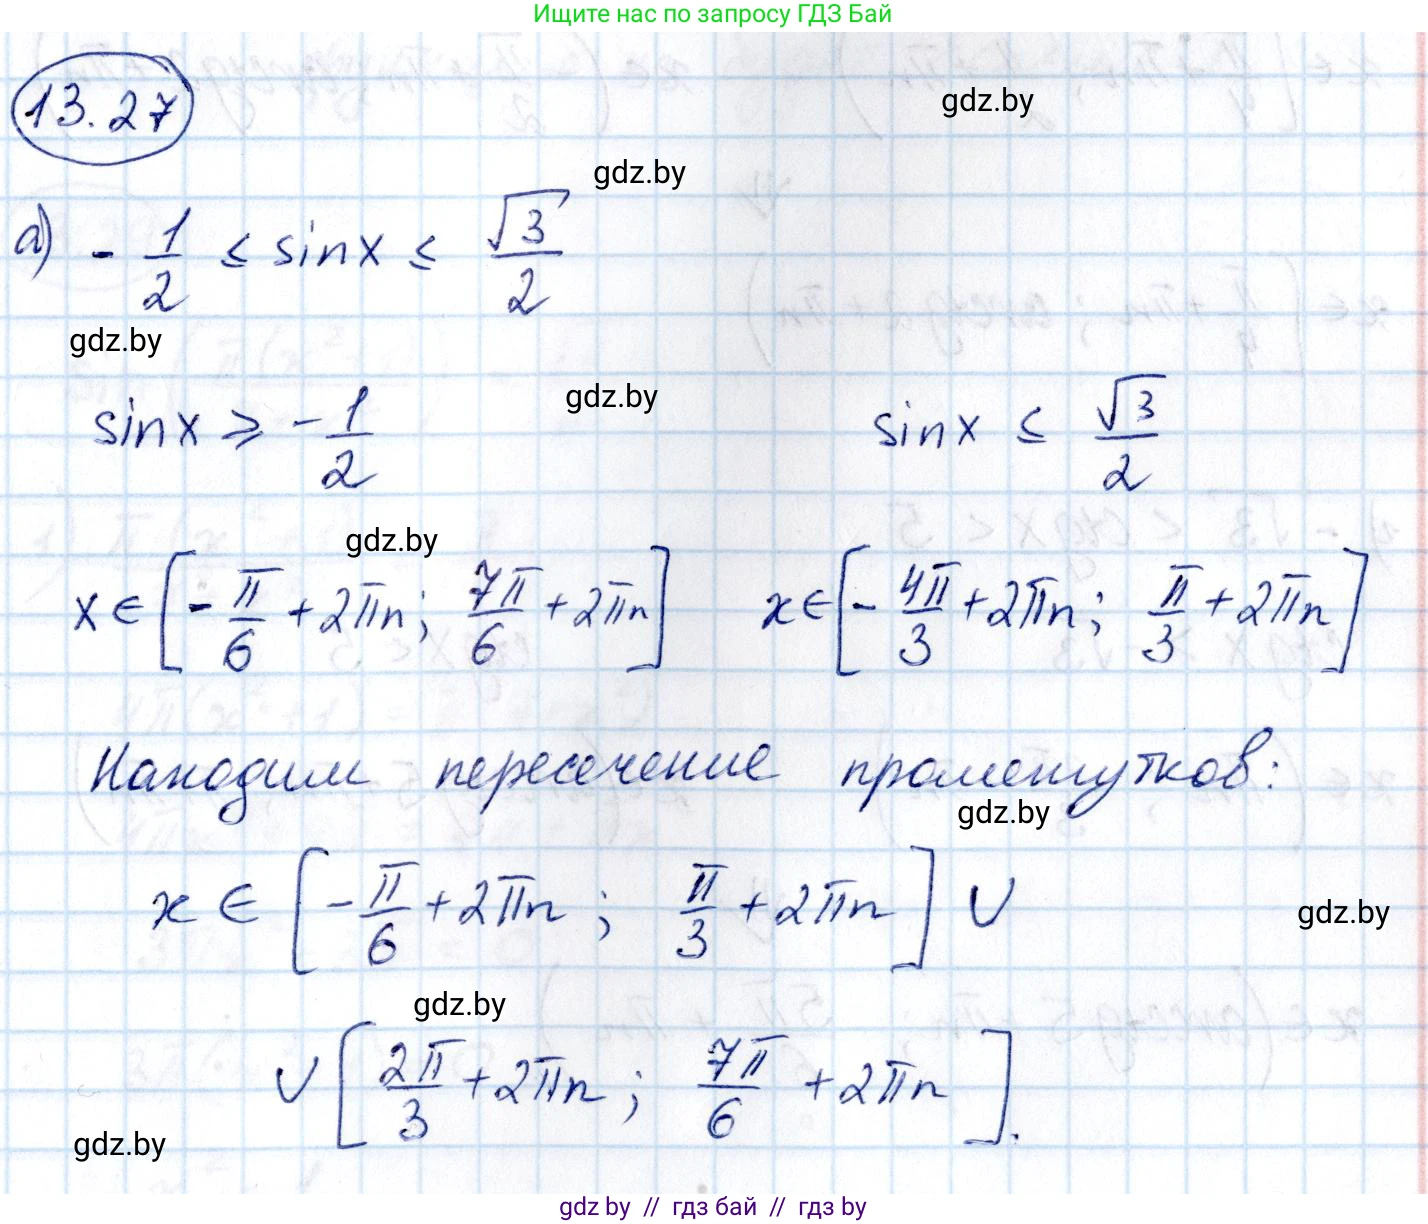 Ищите нас по запросу ГДЗ Бай
13.27
gdz.by
gdz.by
а) -1/2 ≤ sinx ≤ √3/2
gdz.by
gdz.by
sinx ≥ -1/2 sinx ≤ √3/2
gdz.by
x ∈ [-π/6 + 2πn; 7π/6 + 2πn] x ∈ [-4π/3 + 2πn; π/3 + 2πn]
Находим пересечение промежутков:
gdz.by
x ∈ [-π/6 + 2πn; π/3 + 2πn] ∪
gdz.by
gdz.by
∪ [2π/3 + 2πn; 7π/6 + 2πn].
gdz.by
gdz by // гдз бай // гдз by